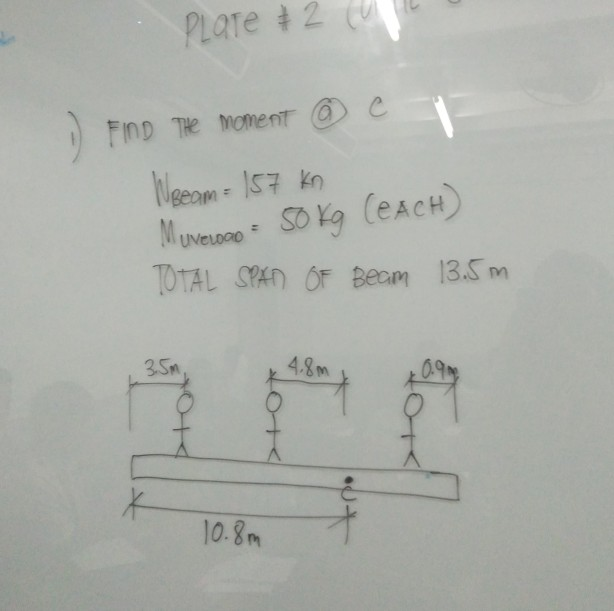 PLATE # 2
1) FIND THE MOMENT @ C
WBEAM = 157 KN
MLIVELOAD = 50 Kg (EACH)
TOTAL SPAN OF BEAM 13.5 m
3.5m 4.8m 0.9m
C
10.8m